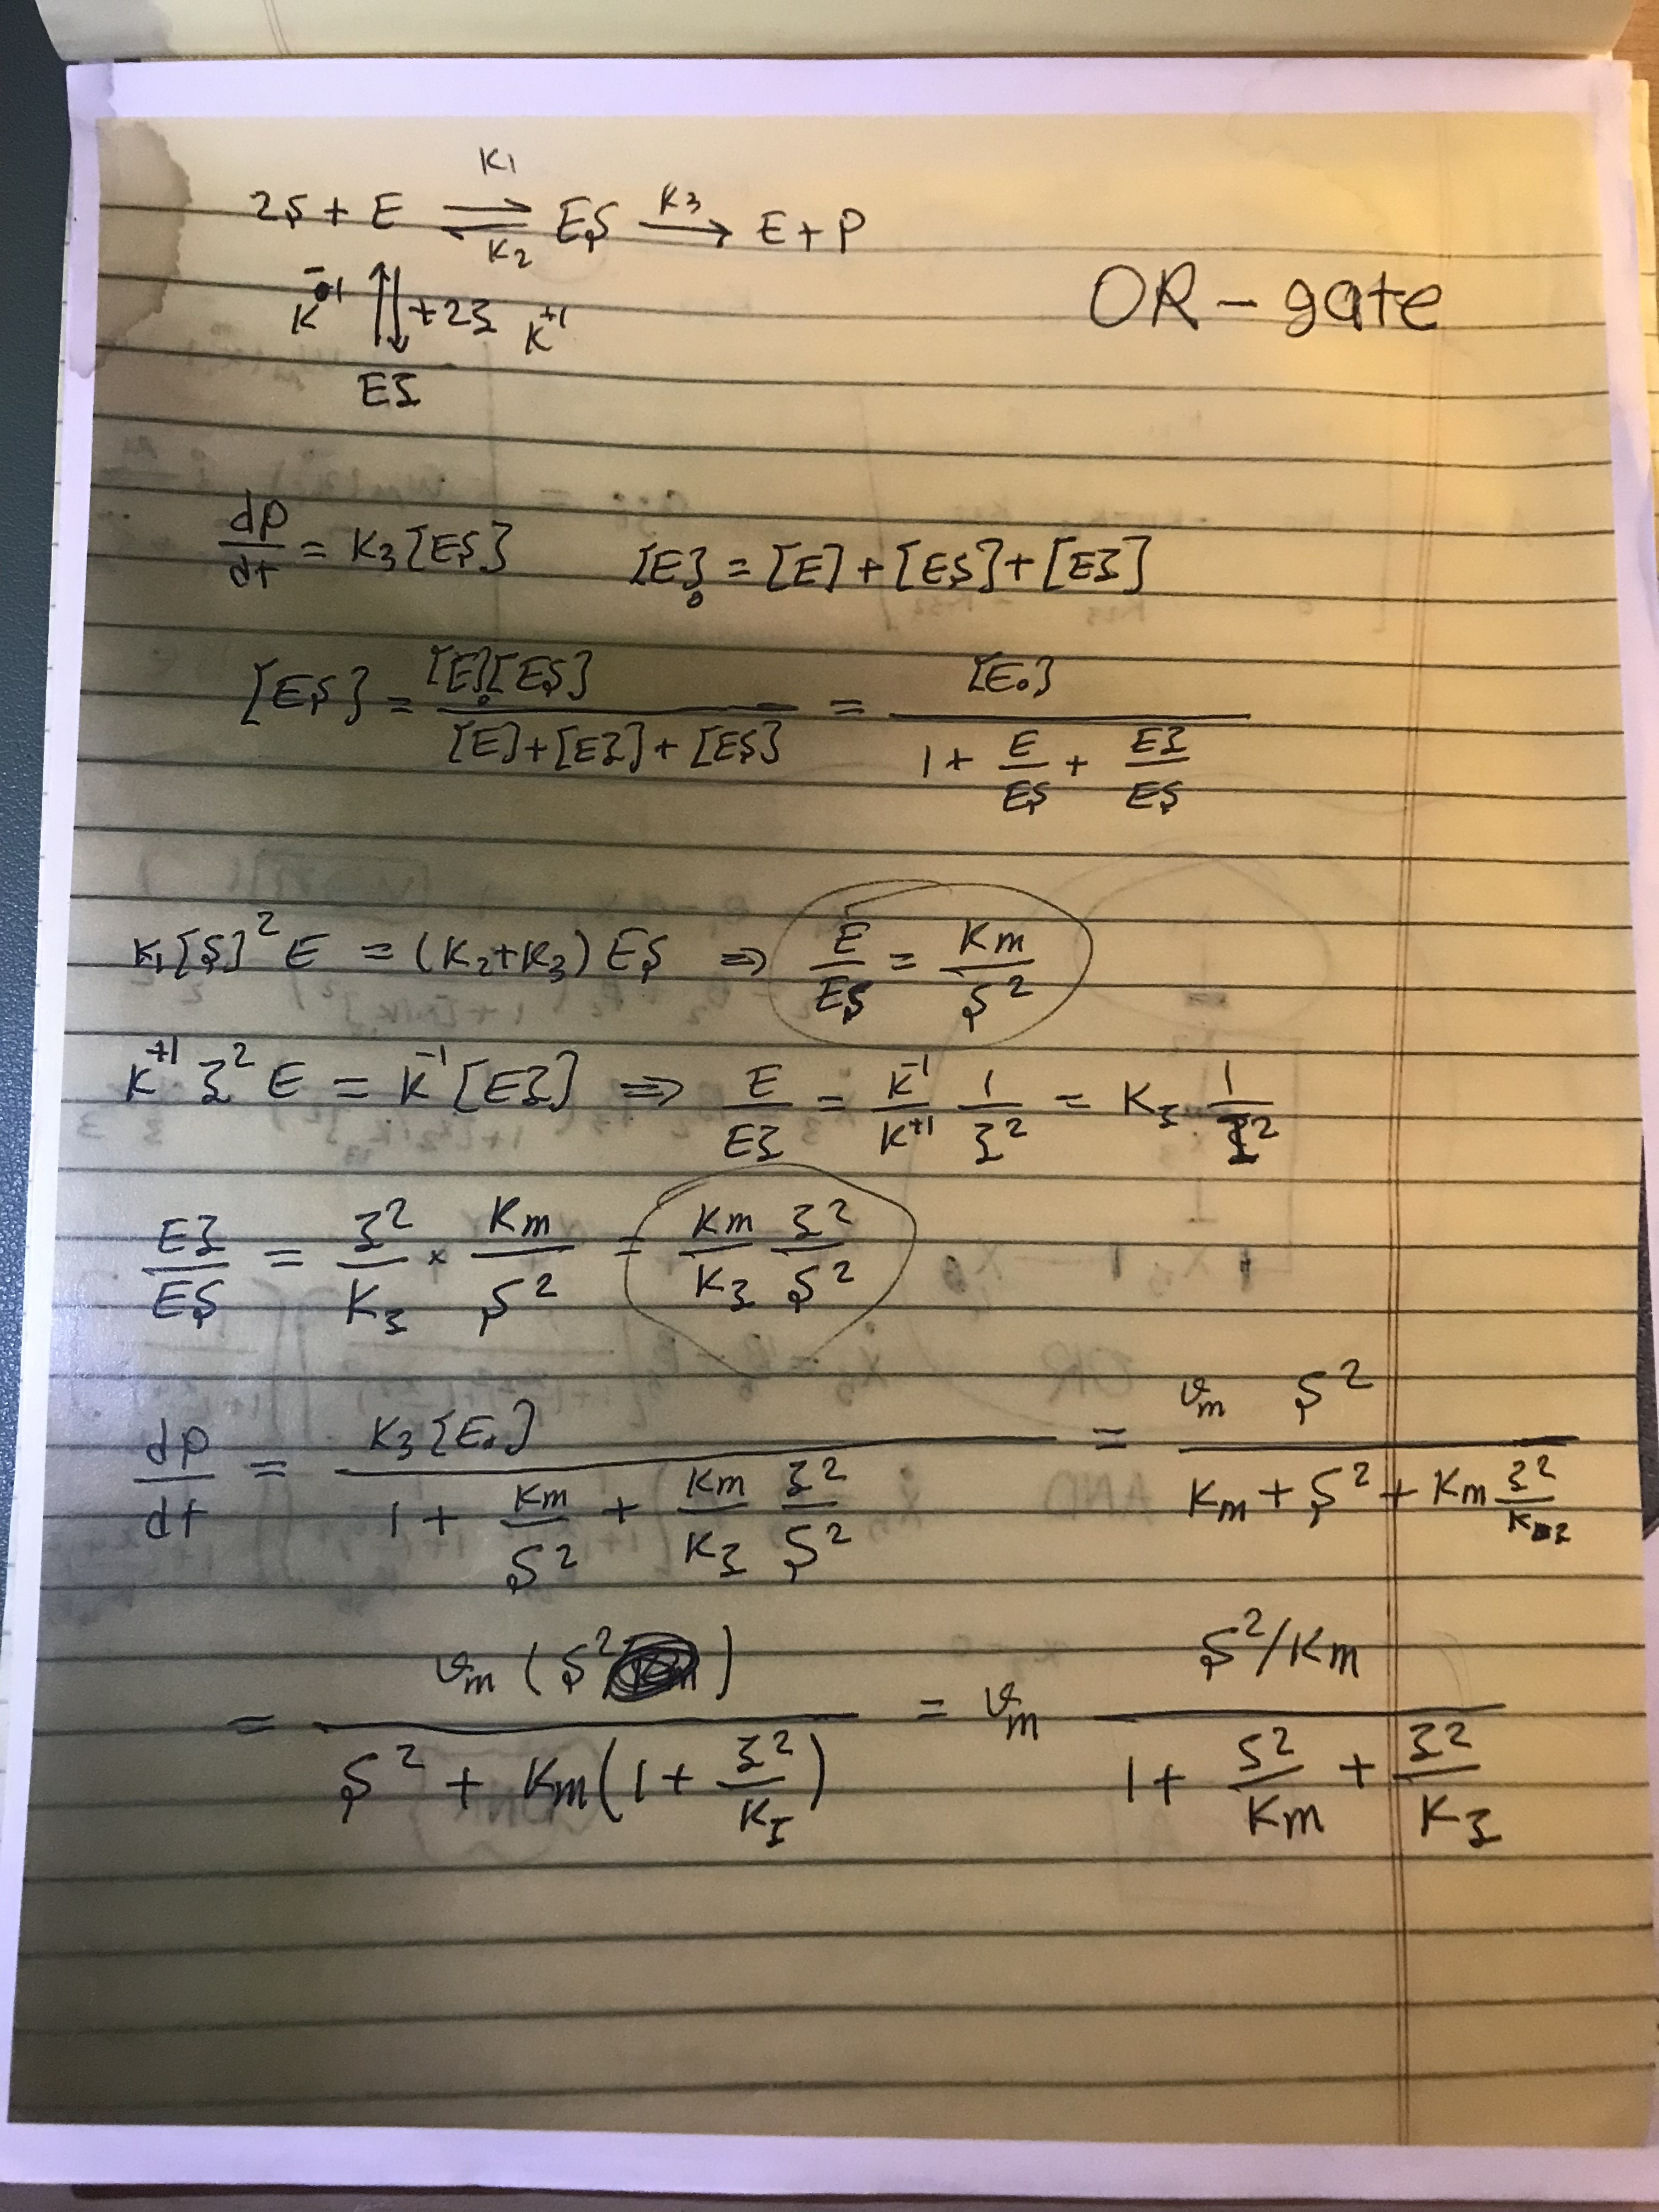 2S + E ⇌ ES → E + P
K1 K3
K2
K-1 ↑↓ +2I K+1
OR - gate
EI
dP/dt = K3[ES] [E]0 = [E] + [ES] + [EI]
[ES] = [E]0[ES] / [E]+[EI]+[ES] = [E0] / 1 + E/ES + EI/ES
K1[S]² E = (K2+K3) ES ⇒ E/ES = Km/S²
K+1 I² E = K-1 [EI] ⇒ E/EI = K-1/K+1 1/I² = KI 1/I²
EI/ES = I²/KI × Km/S² = Km/KI I²/S²
dP/dt = K3[E0] / 1 + Km/S² + Km/KI I²/S² = vm S² / Km + S² + Km I²/KI
= vm (S²) / S² + Km(1 + I²/KI) = vm S²/Km / 1 + S²/Km + I²/KI